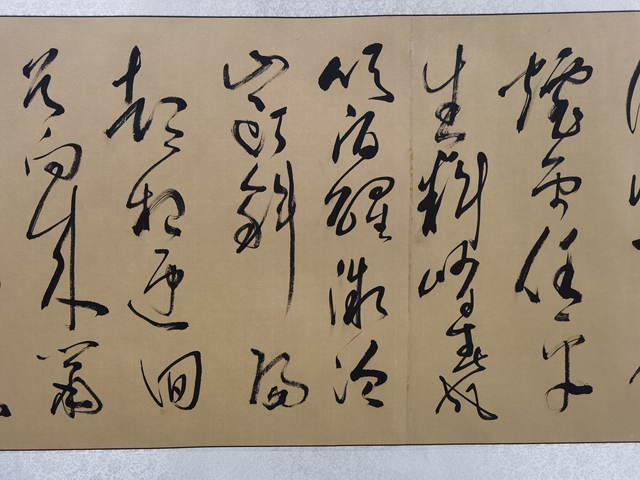 煙雨任平
生料峭春風
吹酒醒微冷
山頭斜照
却相迎回
首向来蕭